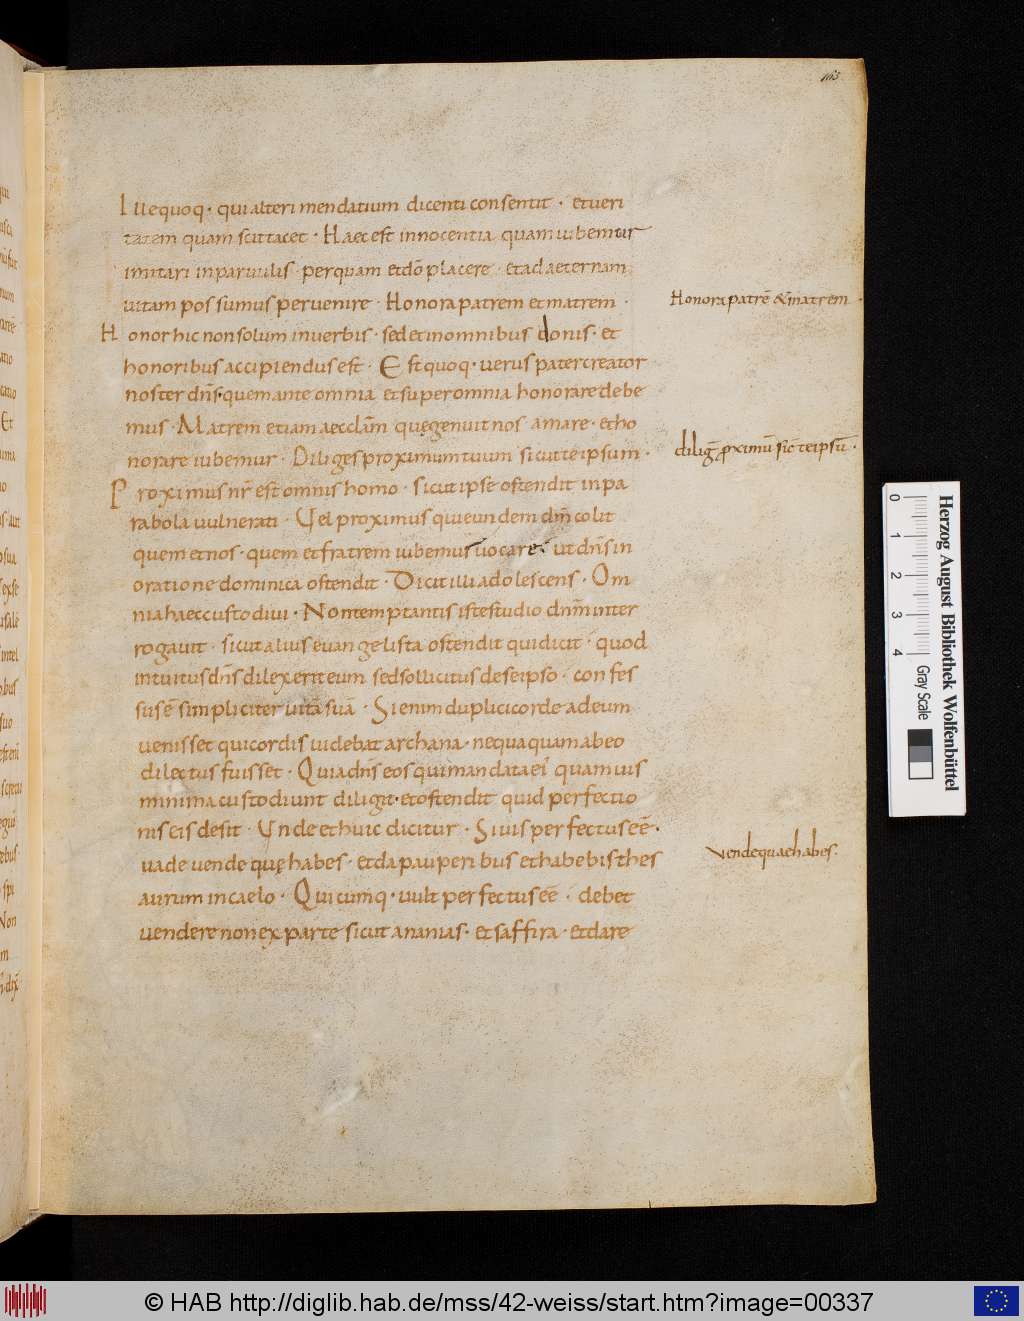 163
Ille quoq· qui alteri mendatium dicenti consentit · et veri
tatem quam scit tacet · Haec est innocentia quam iubemur
imitari in parvulis · per quam et dō placere · et ad aeternam
vitam possumus pervenire · Honora patrem et matrem ·
Honora patrē & matrem ·
Honor hic non solum in verbis · sed et in omnibus donis · et
honoribus accipiendus est · Est quoq· verus pater creator
noster dn̄s · quem ante omnia et super omnia honorare debe
mus · Matrem etiam aecclām quę genuit nos amare · et ho
norare iubemur · Diliges proximum tuum sicut te ipsum ·
diliḡ ꝓximū sic̄ te ipsū ·
Proximus nr̄ est omnis homo · sicut ipse ostendit in pa
rabola vulnerati · Vel proximus qui eundem dn̄m colit
quem et nos · quem et fratrem iubemur vocare · ut dn̄s in
oratione dominica ostendit · Dicit illi adolescens · Om
nia haec custodivi · Non temptantis iste studio dn̄m inter
rogavit · sicut alius evangelista ostendit qui dicit · quod
intuitus dn̄s dilexerit eum sed sollicitus de se ipso · confes
sus ē simpliciter vitā suā · Si enim duplici corde ad eum
venisset qui cordis videbat archana · nequaquam ab eo
dilectus fuisset · Quia dn̄s eos qui mandata ei quamvis
minima custodiunt diligit · et ostendit quid perfectio
nis eis desit · Unde et huic dicitur · Si vis perfectus eē ·
vade vende quę habes · et da pauperibus et habebis thes
Vende quae habes ·
aurum in caelo · Qui cumq· vult perfectus eē · debet
vendere non ex parte sicut ananias · et saffira · et dare
Herzog August Bibliothek Wolfenbüttel
0 1 2 3 4 Gray Scale
© HAB http://diglib.hab.de/mss/42-weiss/start.htm?image=00337